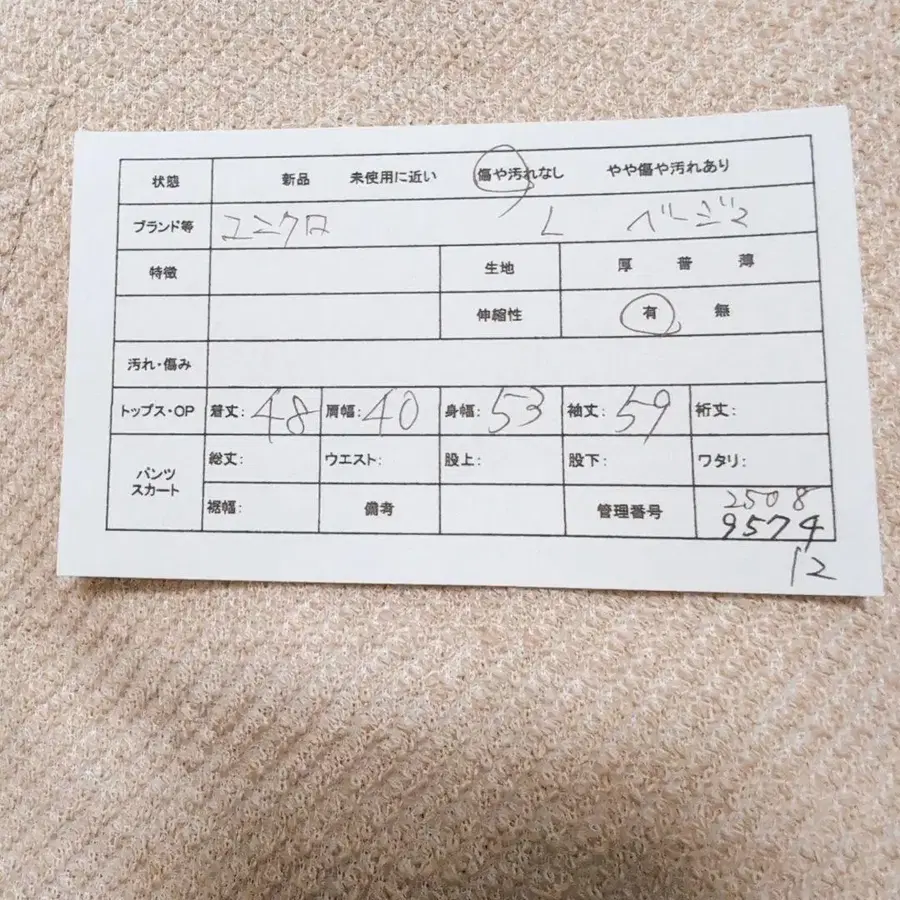 状態 新品 未使用に近い 傷や汚れなし やや傷や汚れあり
ブランド等 ユニクロ L ベージュ
特徴 生地 厚 普 薄
伸縮性 有 無
汚れ・傷み
トップス・OP 着丈: 48 肩幅: 40 身幅: 53 袖丈: 59 裄丈:
パンツ スカート 総丈: ウエスト: 股上: 股下: ワタリ:
裾幅: 備考 管理番号 2508
9574
12